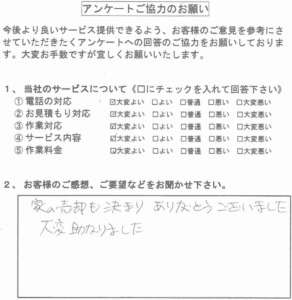 アンケートご協力のお願い
今後より良いサービス提供できるよう、お客様のご意見を参考にさ
せていただきたくアンケートへの回答のご協力をお願いしておりま
す。大変お手数ですが宜しくお願いいたします。
1、当社のサービスについて《□にチェックを入れて回答下さい》
① 電話の対応 ☑大変よい □よい □普通 □悪い □大変悪い
② お見積もり対応 ☑大変よい □よい □普通 □悪い □大変悪い
③ 作業対応 ☑大変よい □よい □普通 □悪い □大変悪い
④ サービス内容 ☑大変よい □よい □普通 □悪い □大変悪い
⑤ 作業料金 ☑大変よい □よい □普通 □悪い □大変悪い
2、お客様のご感想、ご要望などをお聞かせ下さい。
家の売却も決まり ありがとうございました
大変助かりました